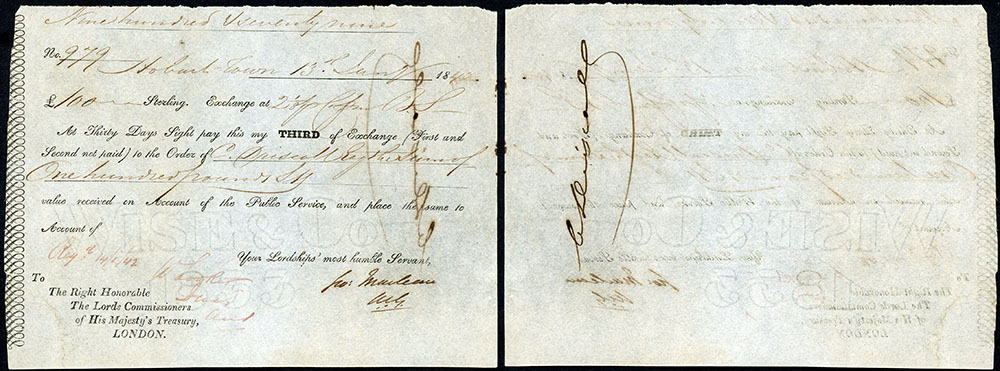 Nine hundred & seventy nine
No. 979
Hobart Town 13th Jany 1842
£100 Sterling. Exchange at
At Thirty Days Sight pay this my THIRD of Exchange (First and
Second not paid) to the Order of C. Driscoll Esq the Sum of
One hundred pounds Stg
value received on Account of the Public Service, and place the same to
Account of
Your Lordships' most humble Servant,
To
The Right Honorable
The Lords Commissioners
of His Majesty's Treasury,
LONDON.
C Driscoll